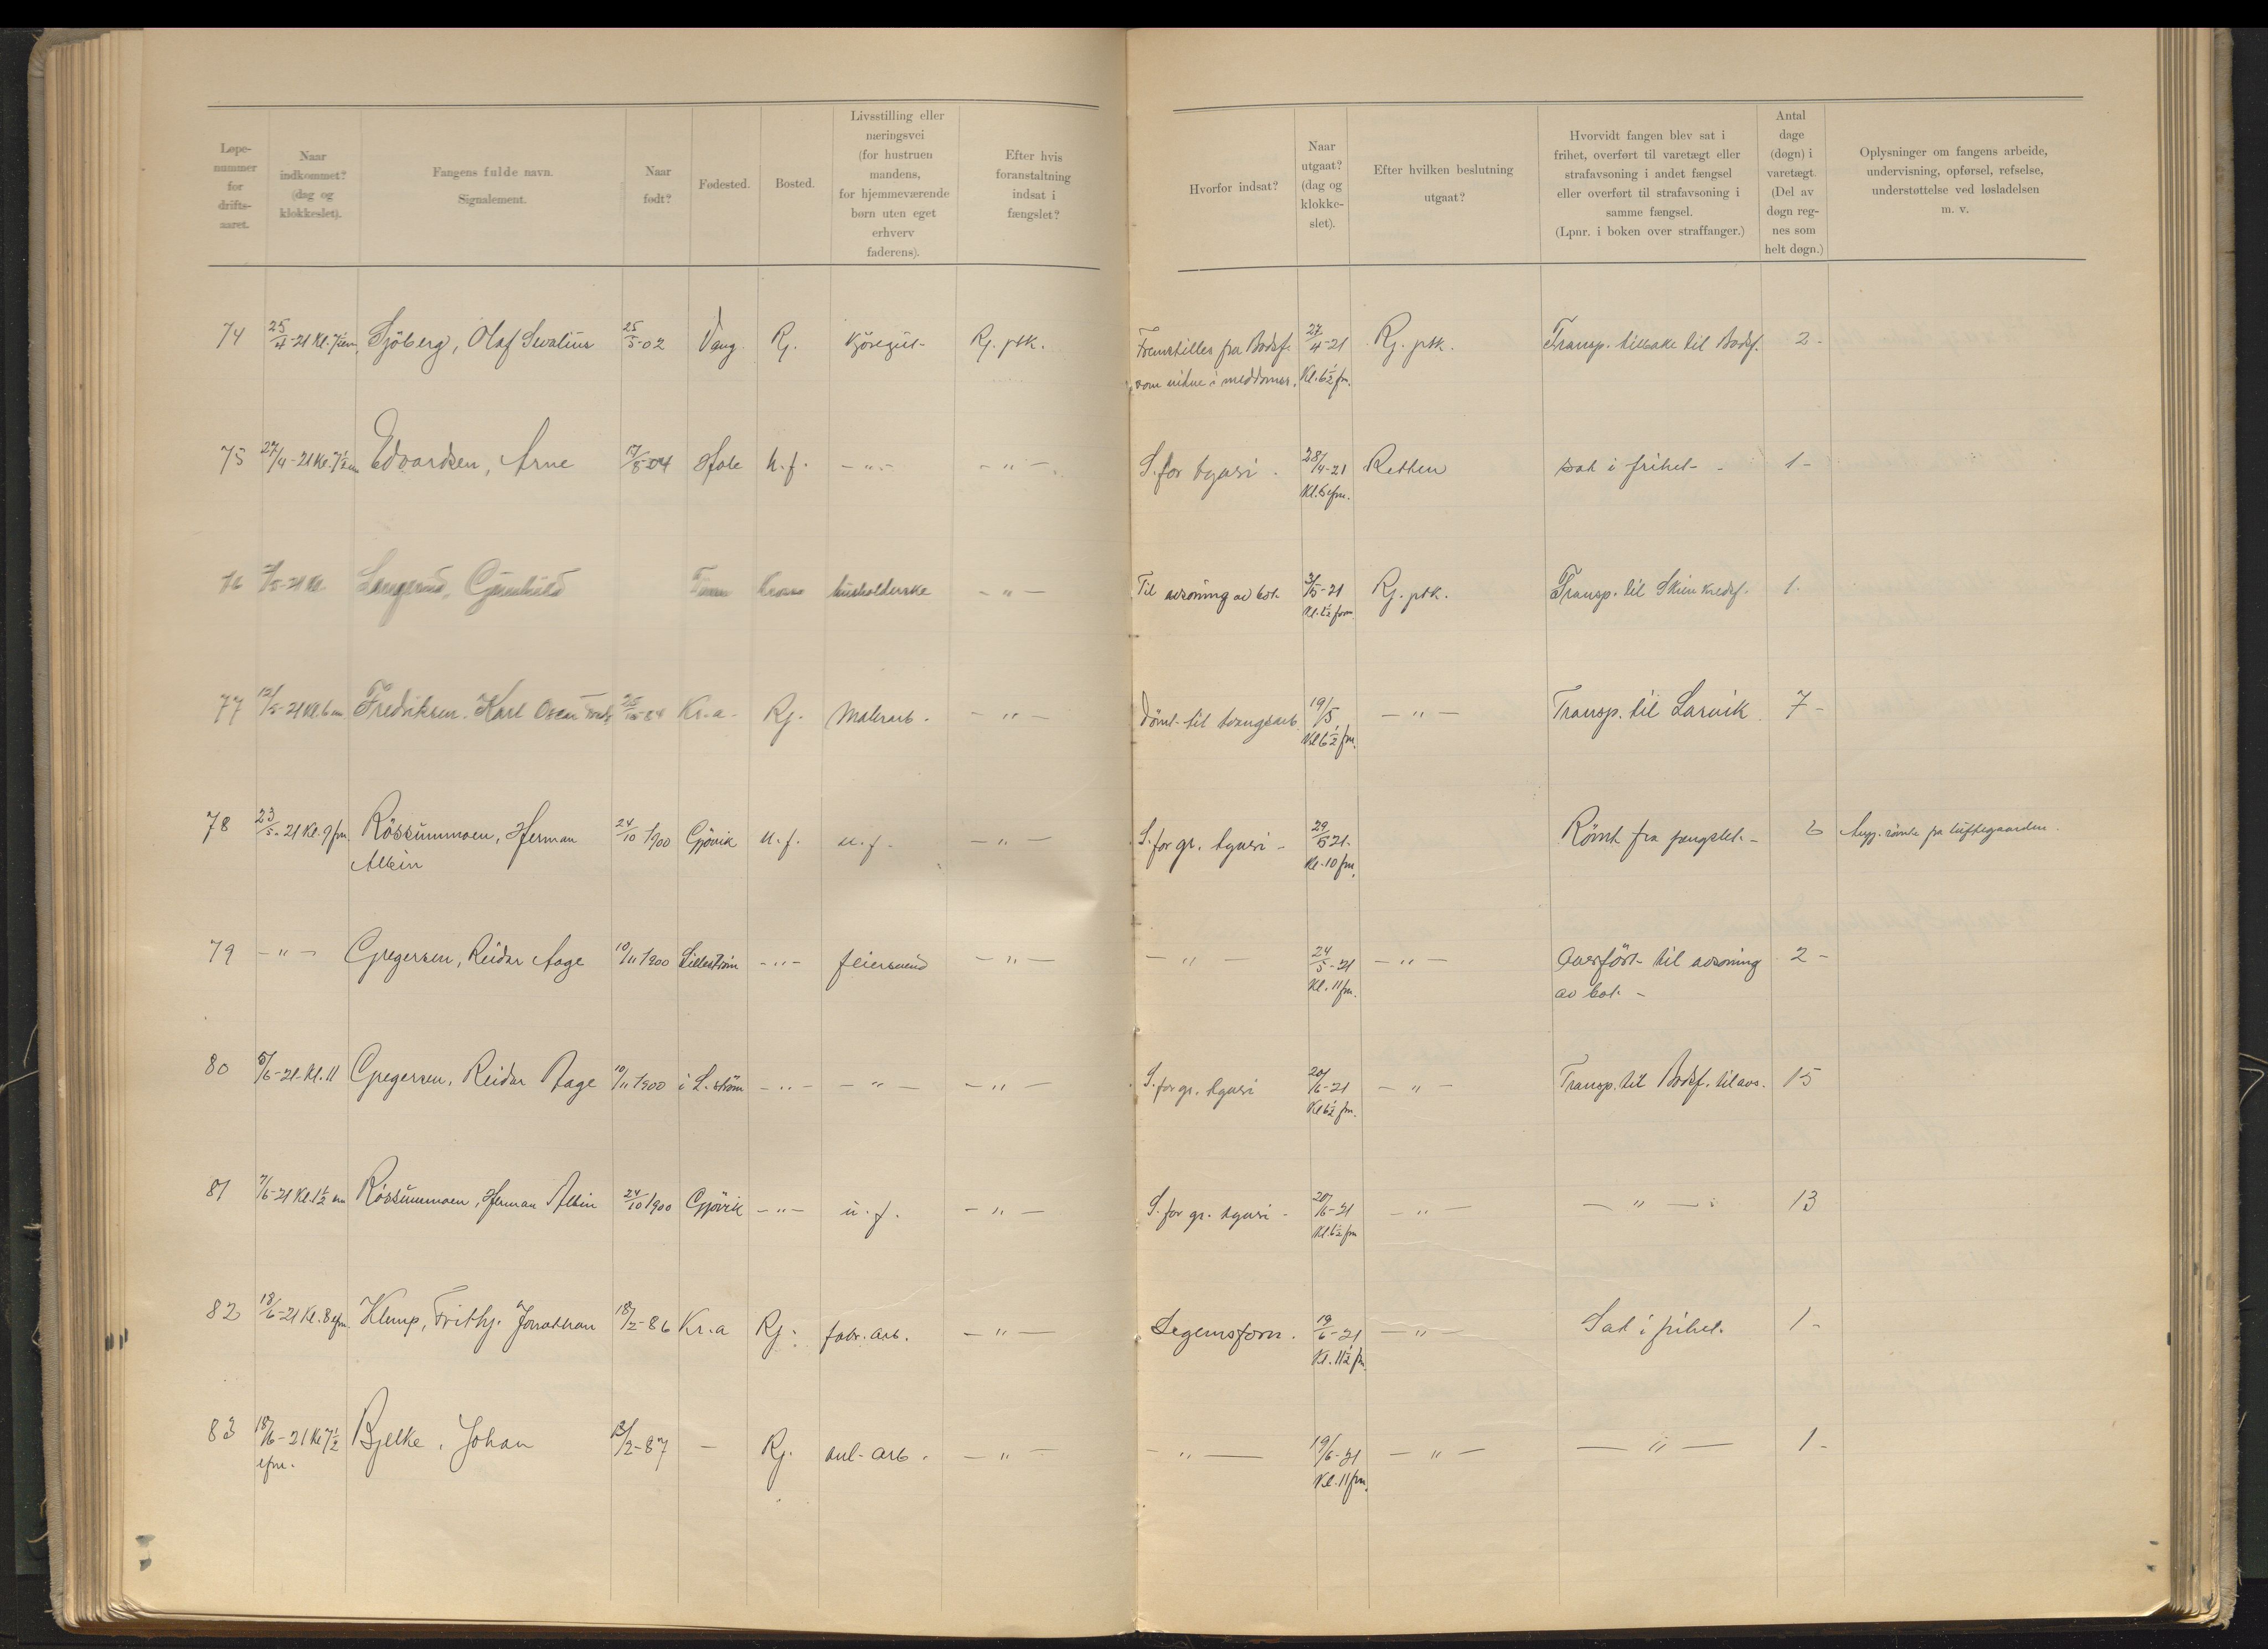 Løpe-
nummer
for
drifts-
aaret.
Naar
indkommet?
(dag og
klokkeslet).
Fangens fulde navn.
Signalement.
Naar
født?
Fødested.
Bosted.
Livsstilling eller
næringsvei
(for hustruen
mandens,
for hjemmeværende
børn uten eget
erhverv
faderens).
Efter hvis
foranstaltning
indsat i
fængslet?
Hvorfor indsat?
Naar
utgaat?
(dag og
klokke-
slet).
Efter hvilken beslutning
utgaat?
Hvorvidt fangen blev sat i
frihet, overført til varetægt eller
strafavsoning i andet fængsel
eller overført til strafavsoning i
samme fængsel.
(Lpnr. i boken over straffanger.)
Antal
dage
(døgn) i
varetægt.
(Del av
døgn reg-
nes som
helt døgn.)
Oplysninger om fangens arbeide,
undervisning, opførsel, refselse,
understøttelse ved løsladelsen
m. v.
74 25/4-21 Kl. 7 em. Sjöberg, Olaf 25/5-02 Vang Rj. kjöregut- Rj. ptk. Fremstilles fra Bodsf. 27/4-21 Rj. ptk. Transp. tilbake til Bodsf. 2-
som vidne i meddomsr. Kl. 6½ fm.
75 27/4-21 Kl. 7½ em Edvardsen, Arne 17/8-04 Hole u. f. -"- -"- S. for tyveri - 28/4-21 Retten sat i frihet- 1-
Kl. 6 efm.
76 2/5-21 Kl. Gunhild husholderske -"- Til avsoning av bot- 3/5-21 Rj. ptk. Transp. til Skien Kredsf. 1.
77 12/5-21 Kl. 6 em Fredriksen, Karl Oscar 84 Kr.a- Rj. Malerarb. -"- Dömt til tvangsarb. 19/5 -"- Transp. til Larvik 7-
Kl 6½ fm.
78 23/5-21 Kl. 9 fm. Rössummoen, Herman 24/10 1900 Gjövik u. f. u. f. -"- S. for gr. tyveri - 29/5 21. Römt fra fengslet.-
Albin Kl. 10 fm.
79 -"- Gregersen, Reidar Aage 10/11 1900 Lilleström -"- feiersvend -"- -"- 24/5-21 -"- Overfört til avsoning 2-
Kl. 11 fm. av bot-
80 5/6-21-Kl. 11 Gregersen, Reidar Aage 10/11 1900 i L.ström -"- -"- -"- S. for gr. tyveri 20/6-21 -"- Transp. til Bodsf. til avs. 15
Kl 6½ fm.
81 7/6-21 Kl. 1½ em Rössummoen, Herman Albin 24/10 1900 Gjövik -"- u. f. -"- S. for gr. tyveri - 20/6-21 -"- -"- 13
Kl. 6½ fm
82 18/6-21 Kl. 8 efm. Klemp, Frithj. Jonathan 18/2-86 Kr.a Rj. fabr. arb. -"- Legemsforn. 19/6-21 -"- Sat i frihet. 1-
Kl. 11½ fm.
83 18/6-21 Kl 7½ Bjelke, Johan 13/2-87 - Rj. anl-arb. -"- -"- 19/6-21 -"- -"- 1-
efm. Kl. 11 fm.